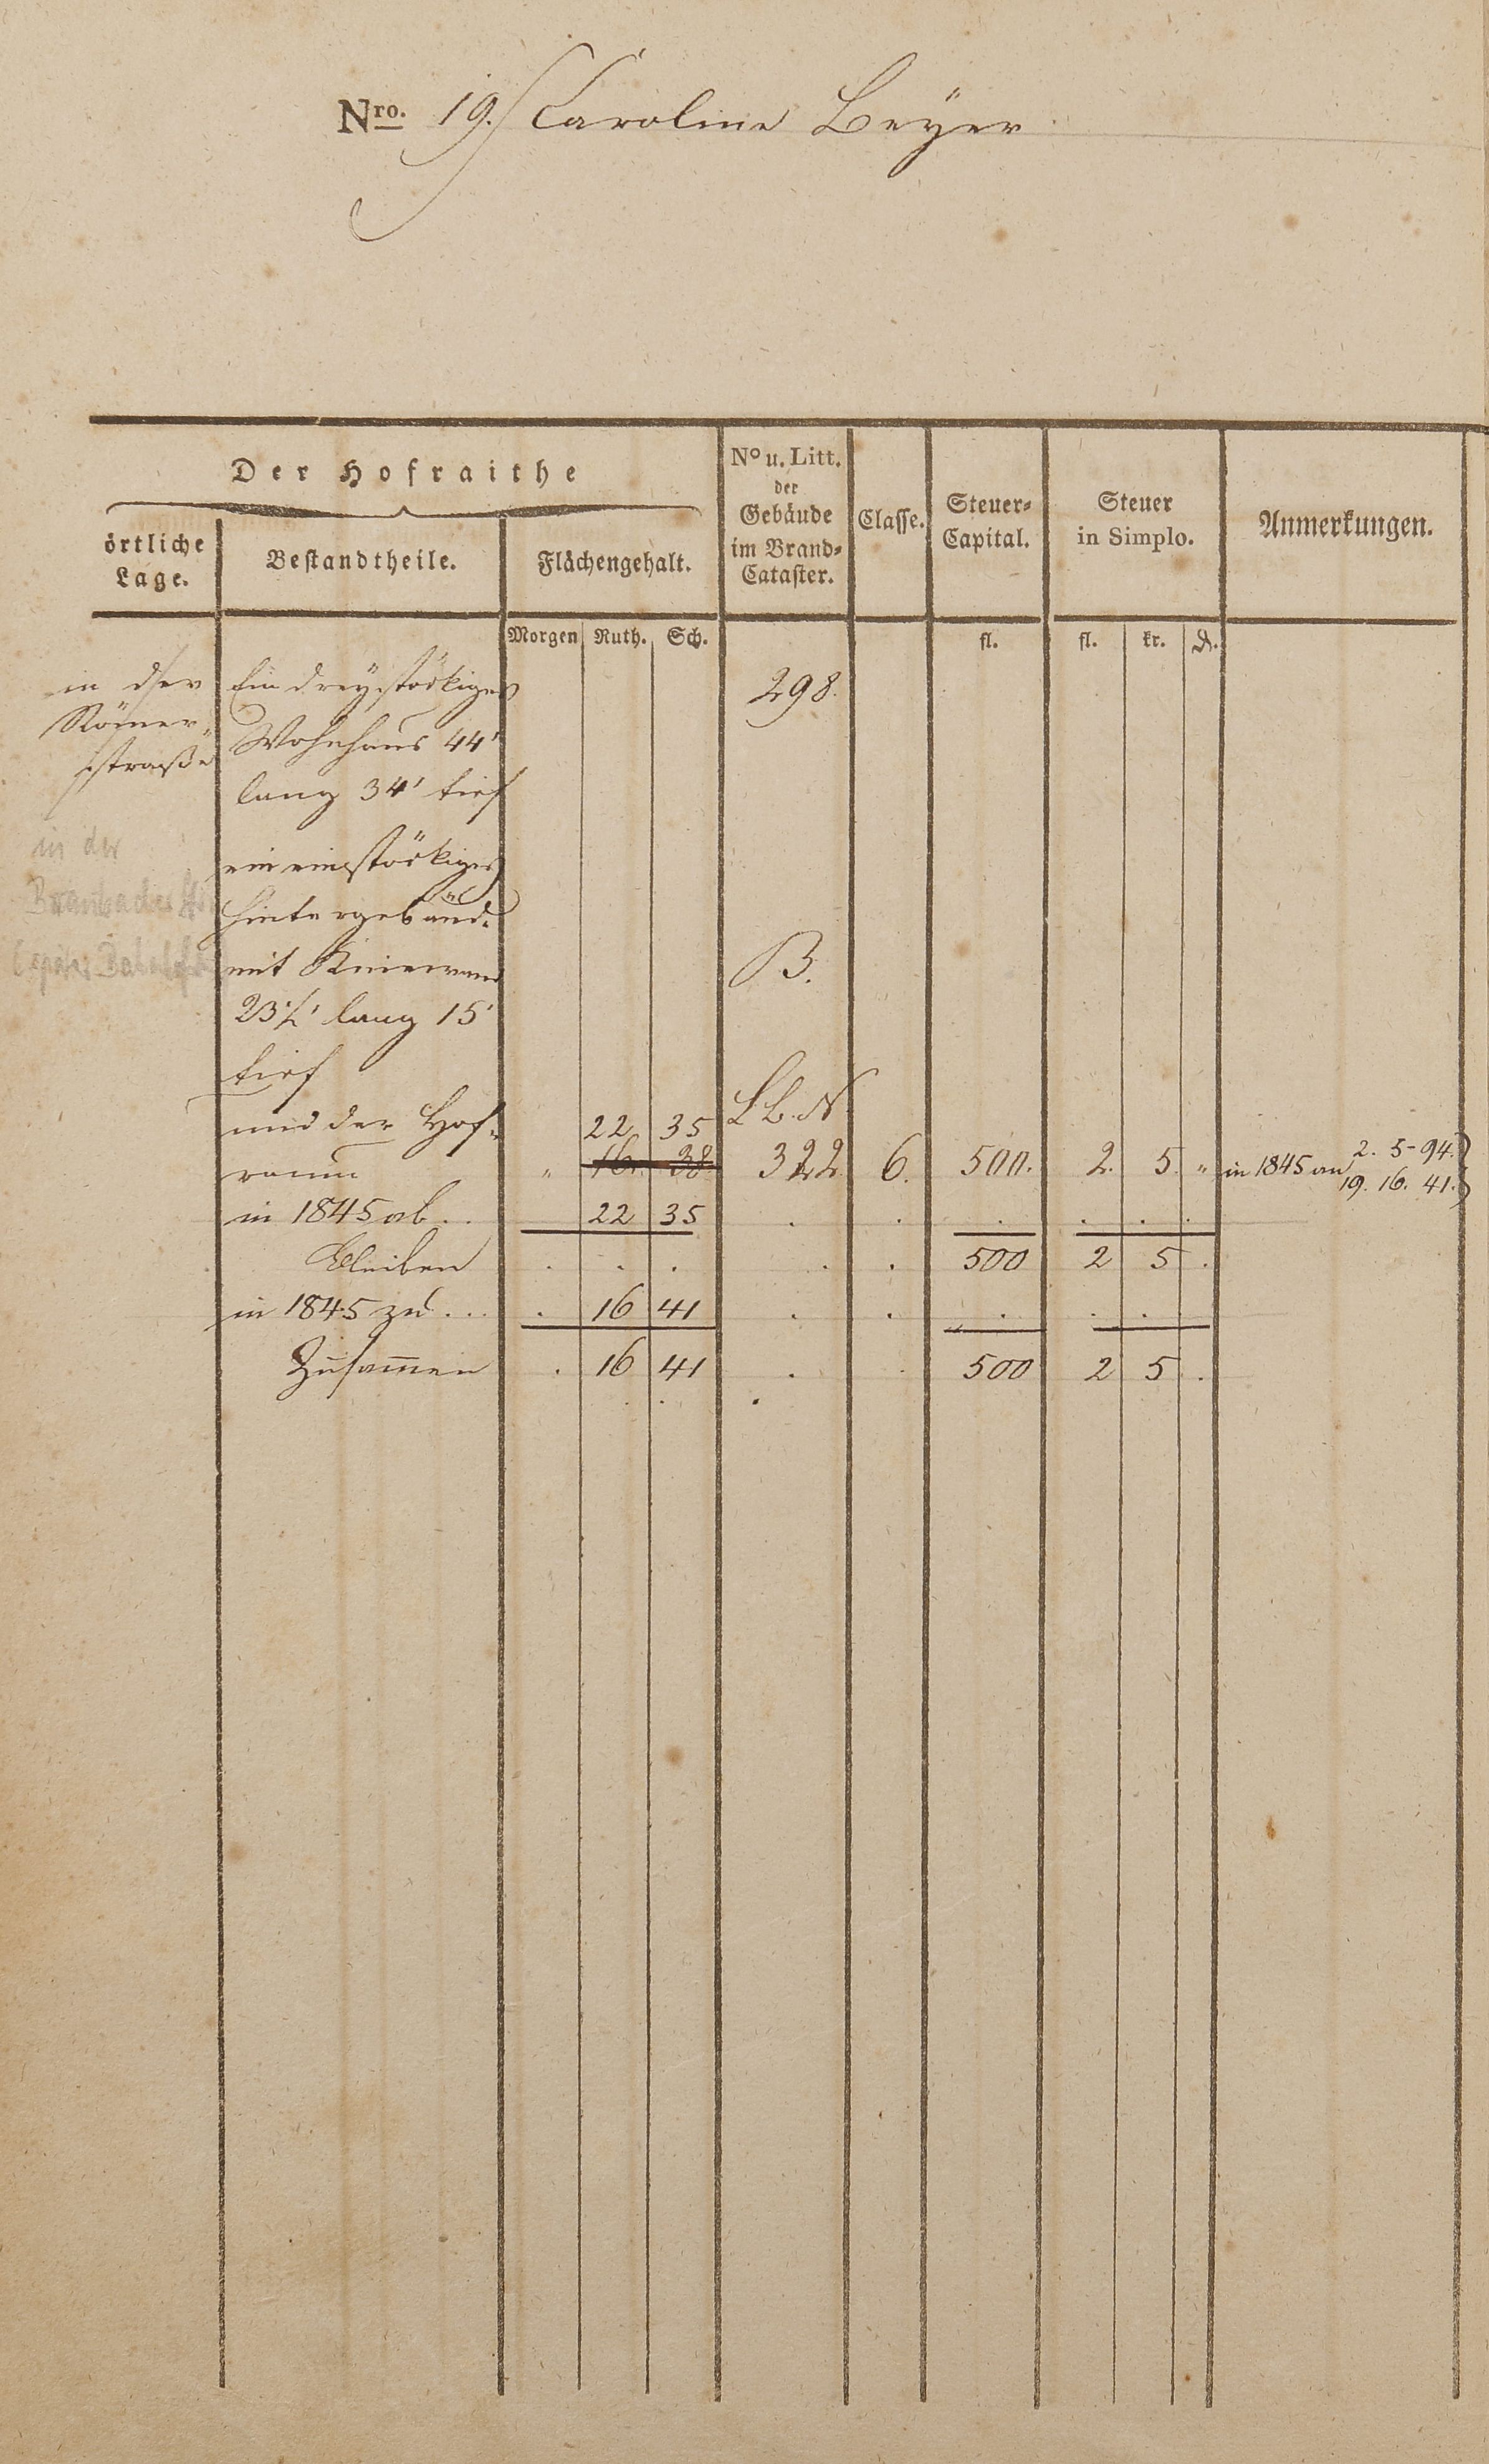 Nro. 19. Caroline Beÿer
Der Hofraithe
örtliche Lage.
Bestandtheile.
Flächengehalt.
No u. Litt. der Gebäude im Brand-Cataster.
Classe.
Steuer-Capital.
Steuer in Simplo.
Anmerkungen.
Morgen Ruth. Sch. fl. fl. kr. d.
in der Ein dreystöckiges 298.
Römer-
straße Wohnhaus 44'
lang 34' tief
in der ein einstöckiges
Hintergebäude
mit Kniewand B.
23½' lang 15'
tief
und der Hof- 22 35 L.B.N
raum " 16. 38. 322 6. 500. 2. 5. " in 1845 an 2. 5-94.
19. 16. 41.
in 1845 ab . . 22 35 . . . . . .
Bleiben . . . . . 500 2 5 .
in 1845 zu . . . . 16 41 . . . . .
Zusammen . 16 41 . . 500 2 5 .